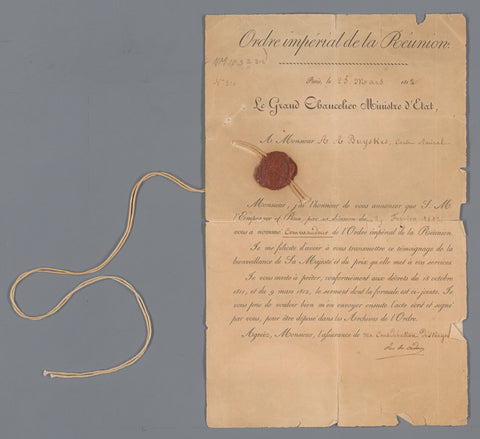 Ordre impérial de la Réunion.
Paris, le 25 Mars 1812
Le Grand Chancelier Ministre d'Etat,
A Monsieur A A Buyskes, Contre Amiral
Monsieur, j'ai l'honneur de vous annoncer que S. M.
l'Empereur et Roi, par sa décision du
vous a nommé Commandeur de l'Ordre impérial de la Réunion.
Je me félicite d'avoir à vous transmettre ce témoignage de la
bienveillance de Sa Majesté et du prix qu'elle met à vos services.
Je vous invite à prêter, conformément aux décrets du 18 octobre
1811, et du 9 mars 1812, le serment dont la formule est ci-jointe. Je
vous prie de vouloir bien m'en envoyer ensuite l'acte écrit et signé
par vous, pour être déposé dans les Archives de l'Ordre.
Agréez, Monsieur, l'assurance de ma Considération Distinguée